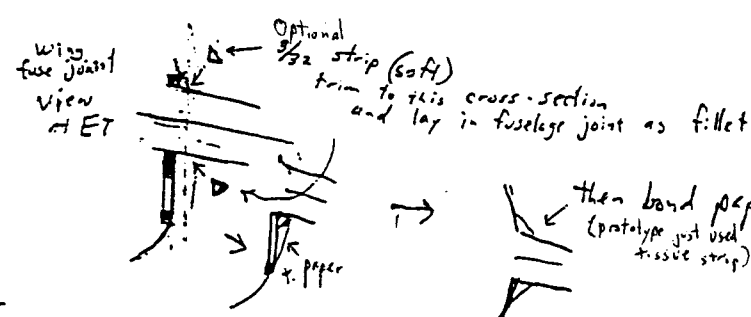 wing
fuse joint
view
Optional
3/32 strip (soft)
trim to this cross-section
and lay in fuselage joint as fillet
paper
then bond pap
(prototype just used
tissue strip)